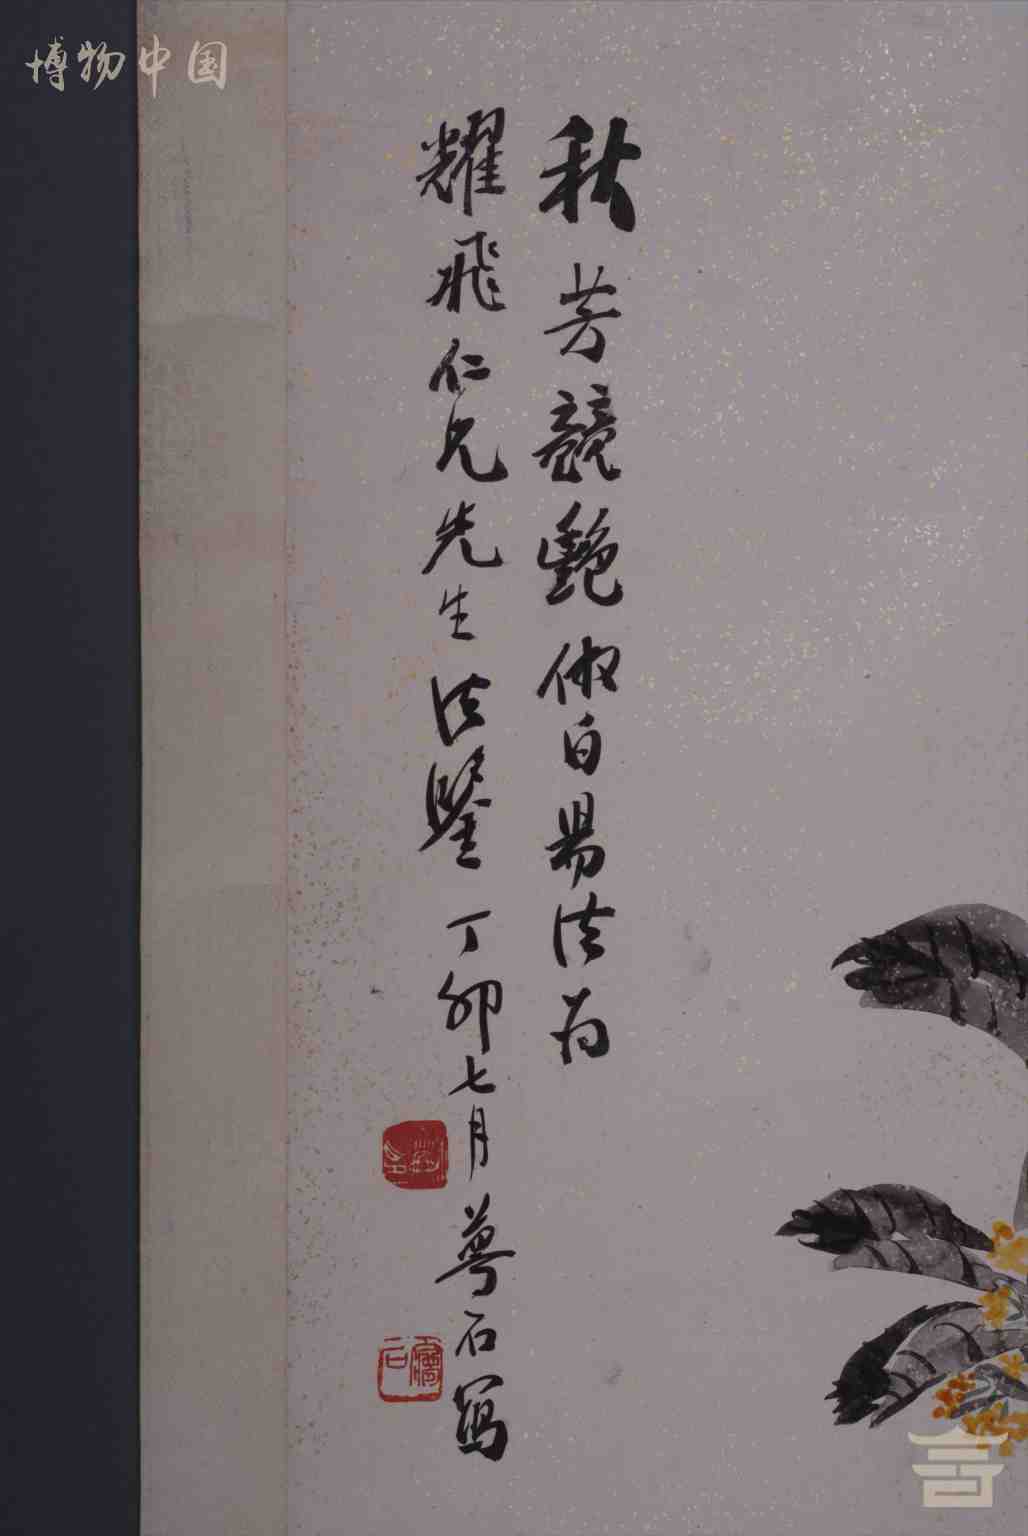 博物中国
秋芳競艷俶白易法為
耀飛仁兄先生法鑒 丁卯七月蕚石寫